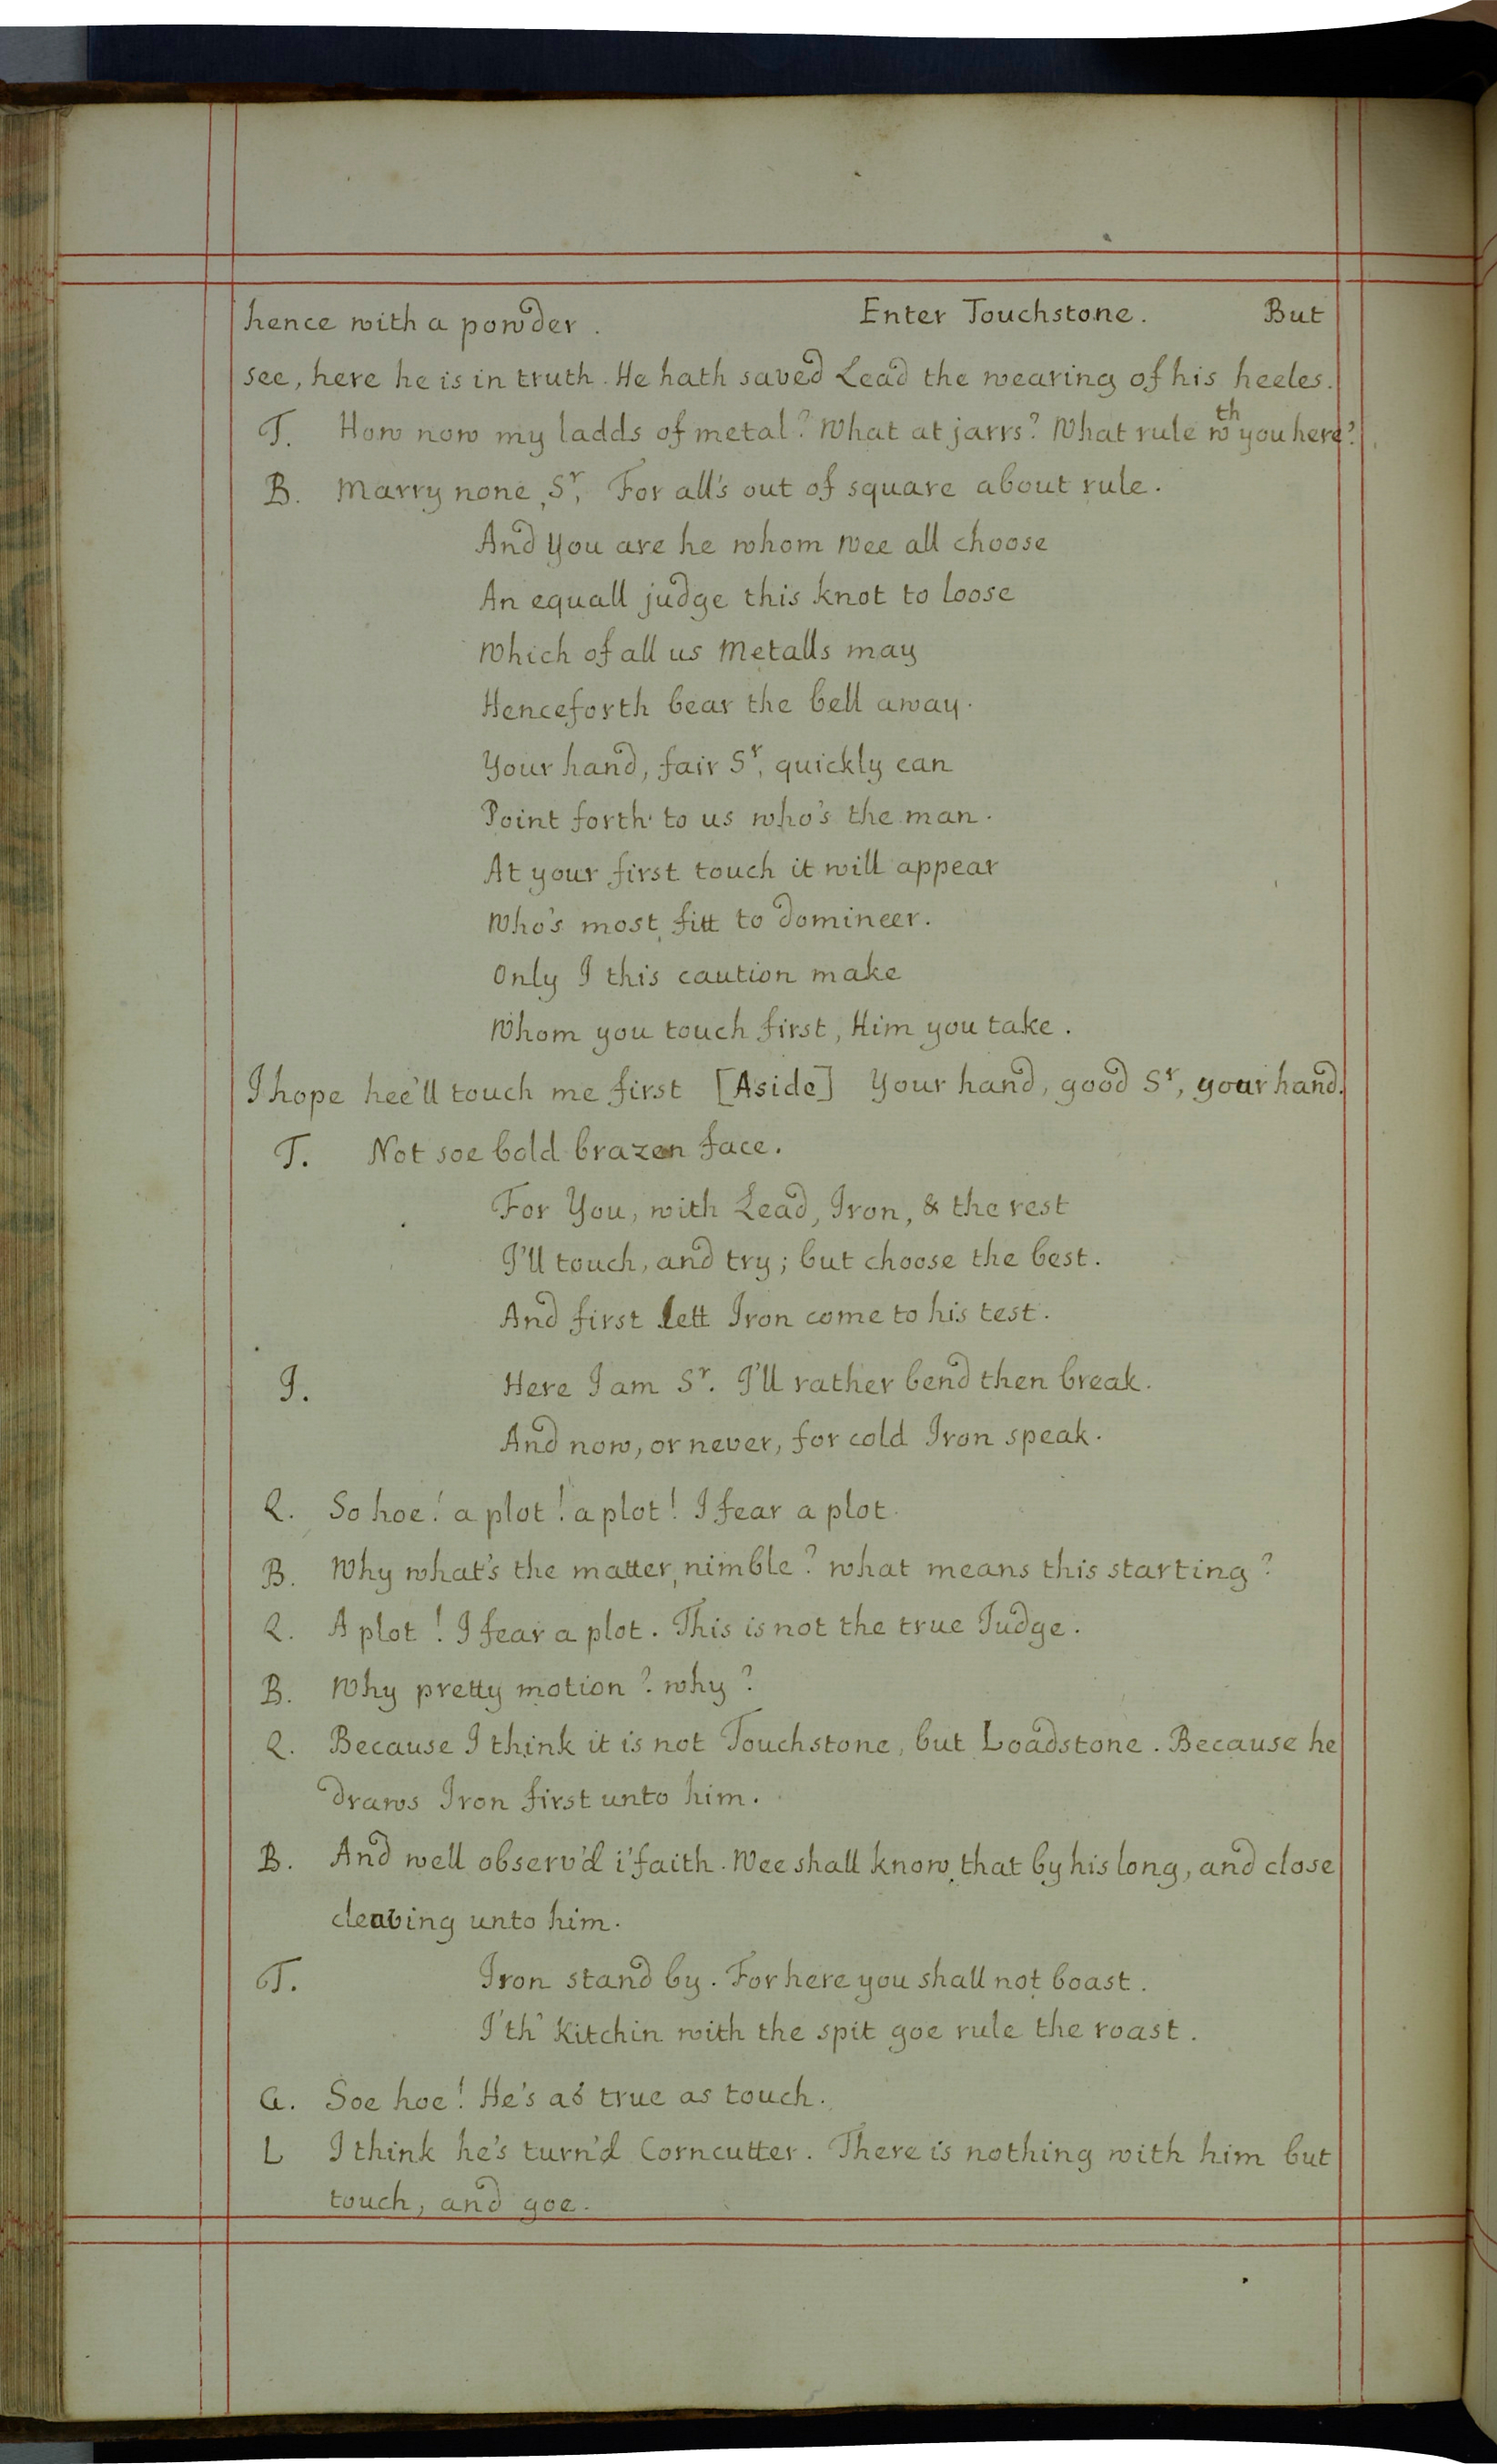 hence with a powder . Enter Touchstone. But
see, here he is in truth. He hath saved Lead the wearing of his heeles.
T. How now my ladds of metal? What at jarrs? What rule wth you here?
B. Marry none, Sr, For all's out of square about rule.
And You are he whom wee all choose
An equall judge this knot to loose
Which of all us Metalls may
Henceforth bear the bell away.
Your hand, fair Sr, quickly can
Point forth to us who's the man.
At your first touch it will appear
Who's most fitt to domineer.
Only I this caution make
Whom you touch first, Him you take.
I hope hee'll touch me first [Aside] Your hand, good Sr, your hand.
T. Not soe bold brazen face.
For You, with Lead, Iron, & the rest
I'll touch, and try; but choose the best.
And first lett Iron come to his test.
I. Here I am Sr. I'll rather bend then break.
And now, or never, for cold Iron speak.
Q. So hoe! a plot! a plot! I fear a plot.
B. Why what's the matter, nimble? what means this starting?
Q. A plot! I fear a plot. This is not the true Iudge.
B. Why pretty motion? why?
Q. Because I think it is not Touchstone, but Loadstone. Because he
draws Iron first unto him.
B. And well observ'd i'faith. Wee shall know that by his long, and close
cleaving unto him.
T. Iron stand by. For here you shall not boast.
I'th' Kitchin with the spit goe rule the roast.
G. Soe hoe! He's as true as touch.
L I think he's turn'd Corncutter. There is nothing with him but
touch, and goe.